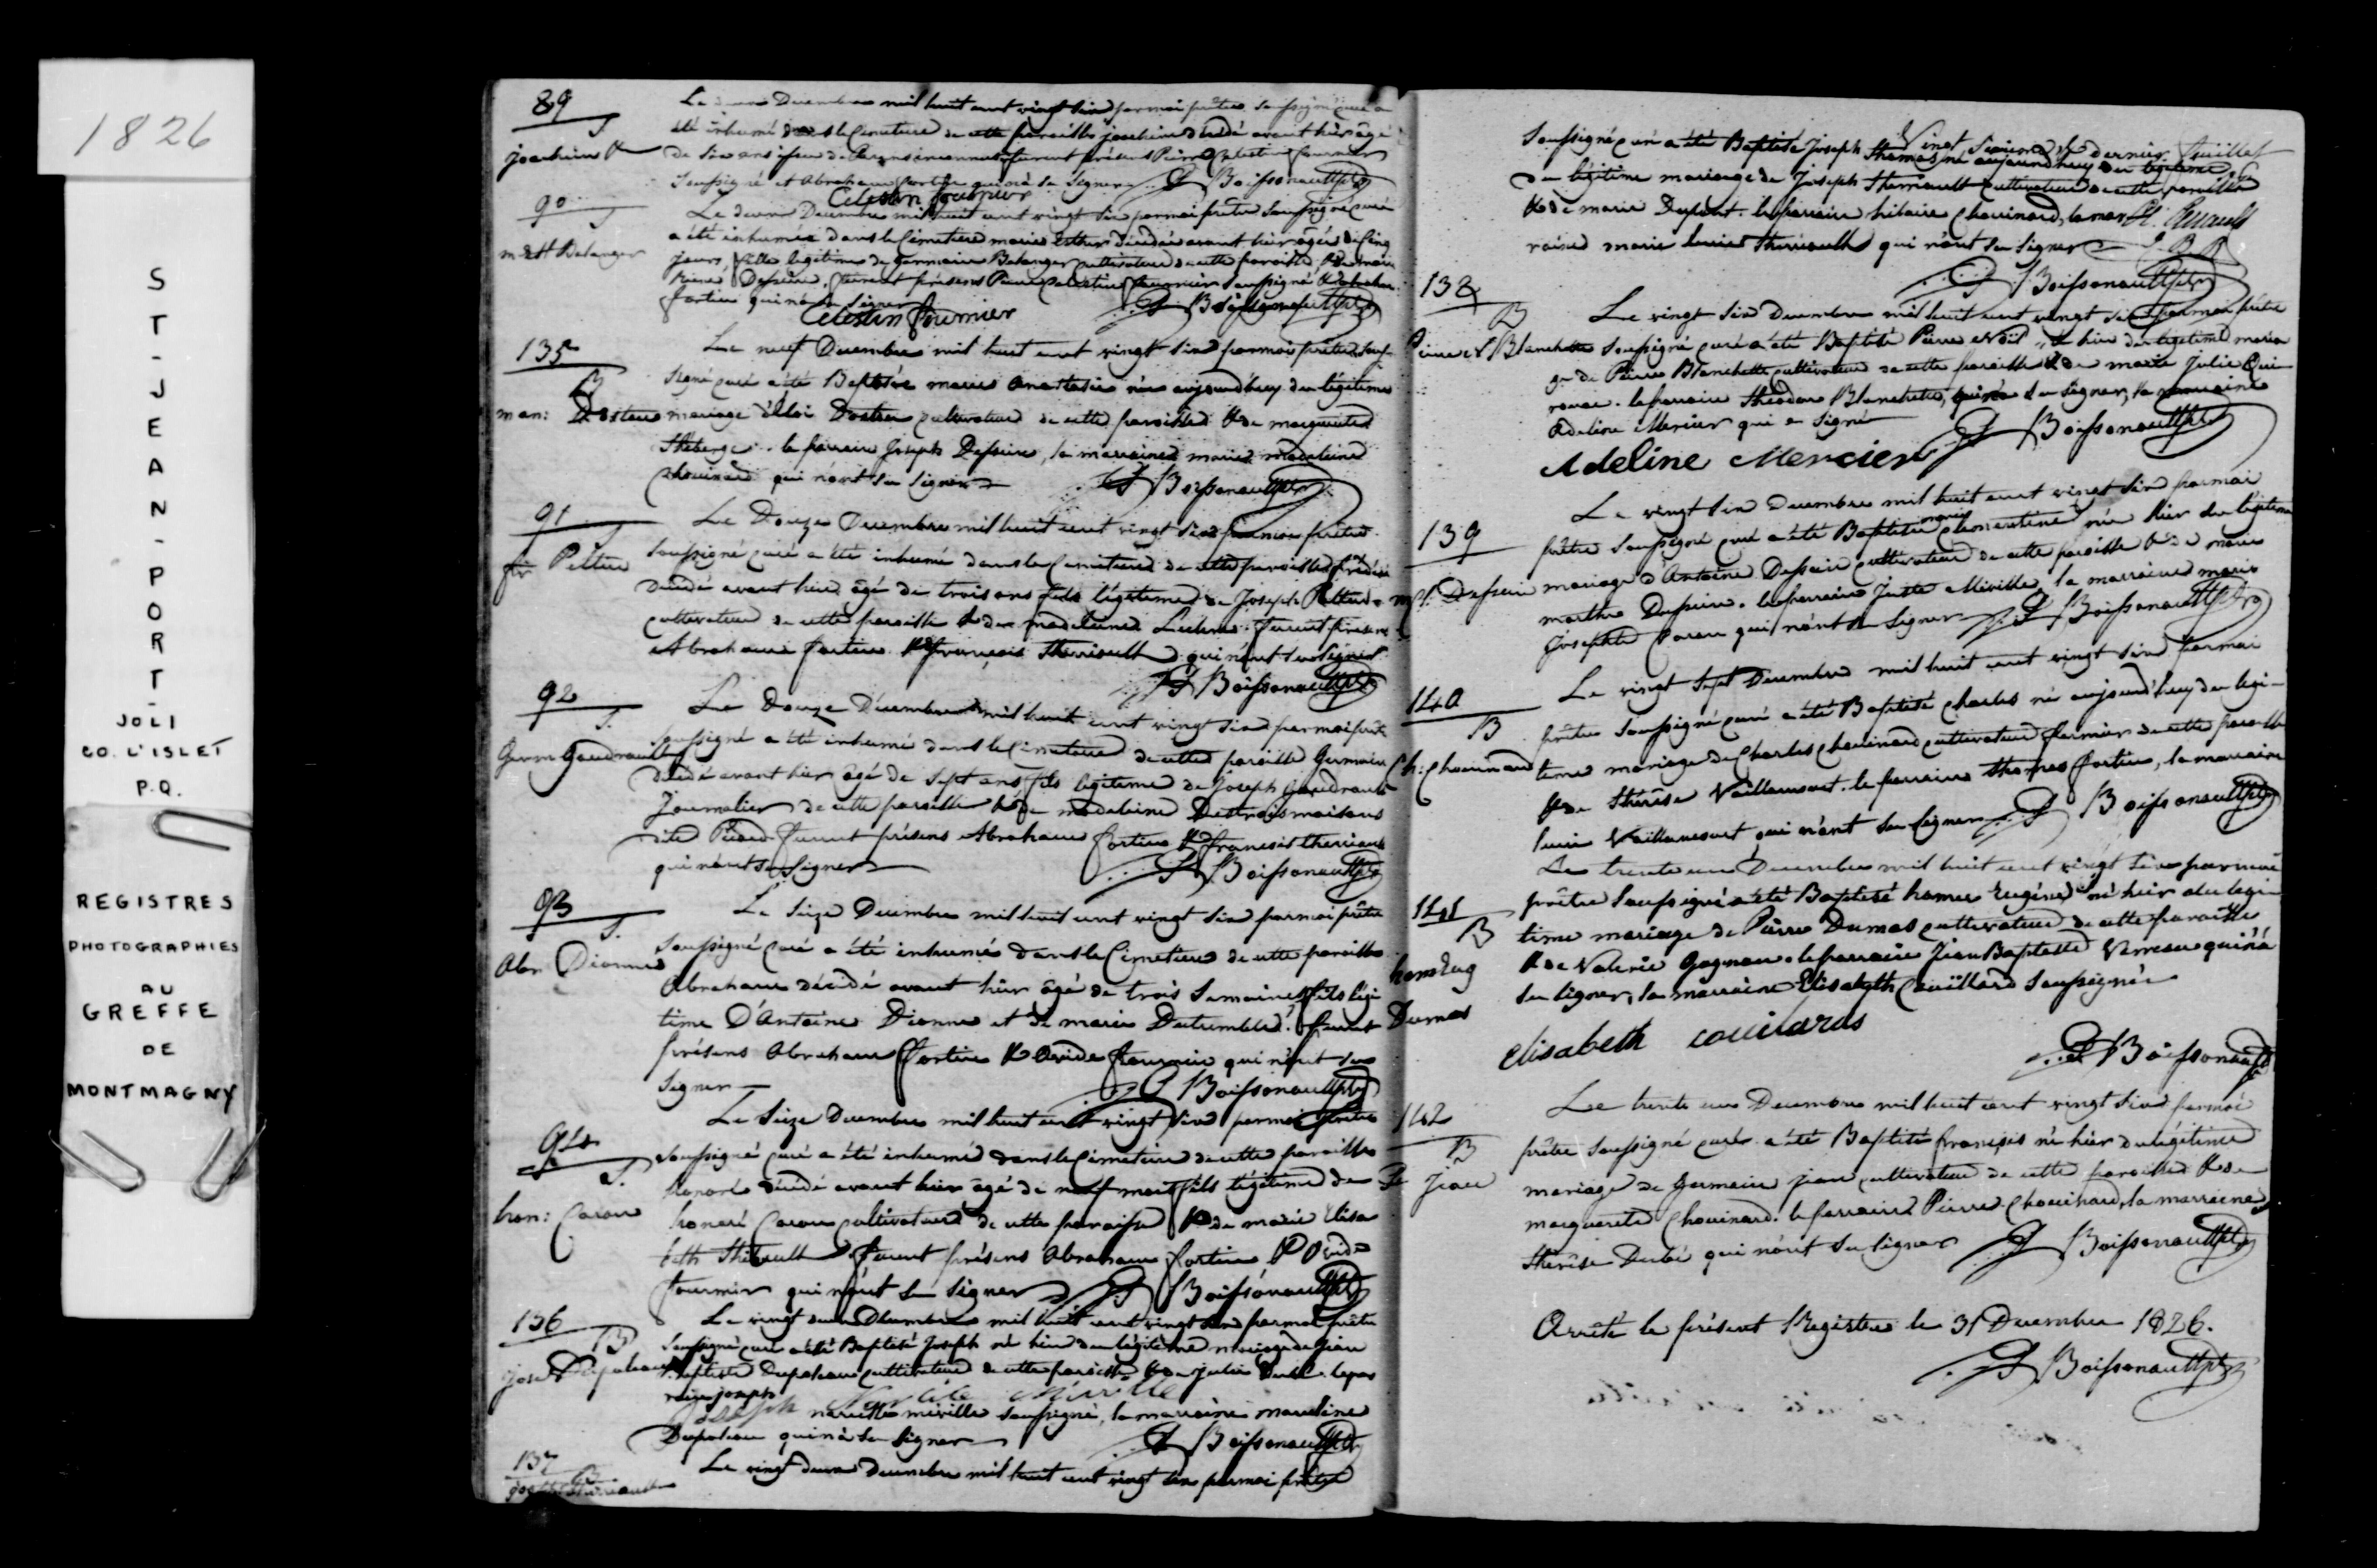 1826
S
T
-
J
E
A
N
-
P
O
R
T
-
JOLI
CO. L'ISLET
P.Q.
REGISTRES
PHOTOGRAPHIES
AU
GREFFE
DE
MONTMAGNY
89
S
Joachim
Le deux Decembre mil huit cent vingt six par moi prêtre soussigné curé a
été inhumé dans le Cimetiere de cette paroisse joachim décédé avant hier âgé
de six ans issu de Parens inconnus furent présens Pierre Celestin fournier
Soussigné et Abraham fortin qui n'a su signer Boissonnault ptre
Celestin fournier
90
S
m. Est Belanger
Le deux Decembre mil huit cent vingt six par moi prêtre soussigné curé
a été inhumée dans le Cimetiere marie Esther décédée avant hier âgée de cinq
jours fille légitime de Germain Belanger cultivateur de cette paroisse & de marie
Dessein, furent présens Pierre Celestin fournier soussigné & Abraham
fortin qui n'a su signer Boissonnault ptre
Celestin fournier
135
B
m an: Dosten
Le neuf Decembre mil huit cent vingt six par moi prêtre sous-
signé curé a été Baptisée marie Anastasie née aujourd'huy du légitime
mariage d'Eloi Dosten cultivateur de cette paroisse & de marguerite
Theberge. le parrain Joseph Dessein, la marraine marie madeleine
chouinard qui n'ont su signer Boissonnault ptre
91
S
Peltier
Le Douze Decembre mil huit cent vingt six par moi prêtre
soussigné curé a été inhumé dans le Cimetiere de cette paroisse
décédé avant hier âgé de trois ans fils légitime de Joseph Peltier
cultivateur de cette paroisse & de madeleine Leclerc. furent présens
Abraham fortin & françois Theriault qui n'ont su signer
Boissonnault ptre
92
S.
Germ Gaudrault
Le Douze Décembre mil huit cent vingt six par moi prêtre
soussigné a été inhumé dans le Cimetiere de cette paroisse Germain
décédé avant hier âgé de sept ans fils légitime de Joseph Gaudrault
Journalier de cette paroisse & de madeleine Destroismaisons
dit Picard furent présens Abraham fortin & françois theriault
qui n'ont su signer Boissonnault ptre
93
S.
Abr. Dionne
Le Seize Decembre mil huit cent vingt six par moi prêtre
soussigné curé a été inhumé dans le Cimetiere de cette paroisse
Abraham décédé avant hier âgé de trois semaines fils légi
time D'Antoine Dionne et de marie Dutremble. furent
présens Abraham fortin & Ovide fournier qui n'ont su
signer Boissonnault ptre
94
S.
hon: Caron
Le Seize Decembre mil huit cent vingt six par moi prêtre
soussigné curé a été inhumé dans le Cimetiere de cette paroisse
honoré décédé avant hier âgé de neuf mois fils légitime de
honoré Caron cultivateur de cette paroisse & de marie Elisa
beth Thibault furent présens Abraham fortin & Ovide
fournier qui n'ont su signer Boissonnault ptre
136
B
Le vingt deux Decembre mil huit cent vingt six par moi prêtre
soussigné curé a été Baptisé Joseph né hier du légitime mariage de Jean
Baptiste Duposeau cultivateur de cette paroisse & de Julie Dubé. le par
rain joseph
Joseph Narcisse Miville
narcisse miville soussigné, la marraine
Duposeau qui n'a su signer Boissonnault ptre
137
B
Joseph Theriault
Le vingt deux Decembre mil huit cent vingt six par moi prêtre
Vingt Sixieme & dernier feuillet
soussigné curé a été Baptisé Joseph Thomas né aujourd'huy du légitime
du légitime mariage de Joseph Theriault cultivateur de cette paroisse
& de marie Dupont. le parrain hilaire Chouinard, la mar
raine marie louise Theriault qui n'ont su signer
J B B
Boissonnault ptre
138
B
Pierre N Blanchette
Le vingt six Decembre mil huit cent vingt six par moi prêtre
soussigné curé a été Baptisé Pierre Noël né hier du légitime maria
ge de Pierre Blanchette cultivateur de cette paroisse & de marie Julie Qui
rouac. le parrain Theodore Blanchette, qui n'a su signer, la marraine
Adeline Mercier qui a signé Boissonnault ptre
Adeline Mercier
139
m cl. Dessein
Le vingt six Decembre mil huit cent vingt six par moi
prêtre soussigné curé a été Baptisée marie clementine née hier du légitime
mariage d'Antoine Dessein cultivateur de cette paroisse & de marie
marthe Dessein. le parrain Juste Miville, la marraine marie
Josephte Caron qui n'ont su signer Boissonnault ptre
140
B
Ch: Chouinard
Le vingt sept Decembre mil huit cent vingt six par moi
prêtre soussigné curé a été Baptisé Charles né aujourd'huy du légi-
time mariage de Charles Chouinard cultivateur fermier de cette paroisse
& de Thérèse Vaillancourt. le parrain Thomas fortin, la marraine
Vaillancourt qui n'ont su signer Boissonnault ptre
141
B
hom Eug
Dumas
Le trente un Decembre mil huit cent vingt six par moi
prêtre soussigné a été Baptisé homer Eugène né hier du légi
time mariage de Pierre Dumas cultivateur de cette paroisse
& de Valerie Gagnon. le parrain Jean Baptiste Verreau qui n'a
su signer, la marraine Elisabeth Couillard soussignée
Elisabeth couillards
Boissonnault ptre
142
B
Jean
Le trente un Decembre mil huit cent vingt six par moi
prêtre soussigné curé a été Baptisé françois né hier du légitime
mariage de Germain jean cultivateur de cette paroisse & de
marguerite Chouinard. le parrain Pierre Chouinard, la marraine
Thérèse Dubé qui n'ont su signer Boissonnault ptre
Arrêté le présent Registre le 31 Decembre 1826.
Boissonnault ptre